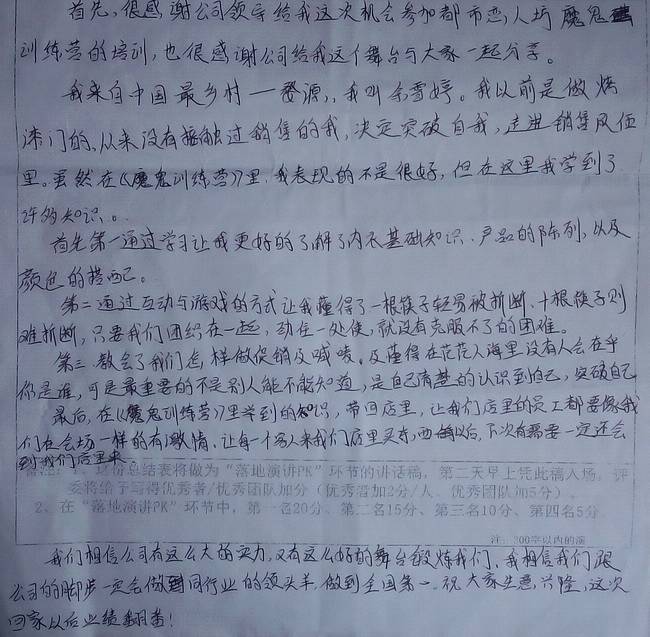 首先,很感谢公司领导给我这次机会参加都市恋人坊魔鬼
训练营的培训,也很感谢公司给我这个舞台与大家一起分享。
我来自中国最乡村一婺源,我叫余雪婷。我以前是做烤
漆门的,从来没有接触过销售的我,决定突破自我,走进销售风位
里。虽然在《魔鬼训练营》里,我表现的不是很好,但在这里我学到了
许多知识。
首先第一通过学习让我更好的了解了内衣基础知识、产品的陈列,以及
颜色的搭配。
第二通过互动与游戏的方式让我懂得了一根筷子轻易被折断、十根筷子则
难折断,只要我们团结在一起,劲往一处使,就没有克服不了的困难。
第三、教会了我们怎样做促销及喊唛,及懂得在茫茫人海里没有人会在乎
你是谁,可是最重要的不是别人能不能知道,是自己清楚的认识到自己,突破自己
最后,在《魔鬼训练营》里学到的知识,带回店里,让我们店里的员工都要像我
们在会场一样的有激情,让每一个客人来我们店里买东西以后,下次有需要一定还会
到我们店里来
份总结表将做为“落地演讲PK”环节的讲话稿,第二天早上凭此稿入场,评
委将给予写得优秀者/优秀团队加分(优秀者加2分/人、优秀团队加5分)。
2、在“落地演讲PK”环节中,第一名20分、第二名15分、第三名10分、第四名5分
注:300字以内的演
我们相信公司有这么大的实力,又有这么好的舞台锻炼我们、我相信我们跟
公司的脚步一定会做到同行业的领头羊,做到全国第一。祝大家生意兴隆,这次
回家以后业绩翻番!